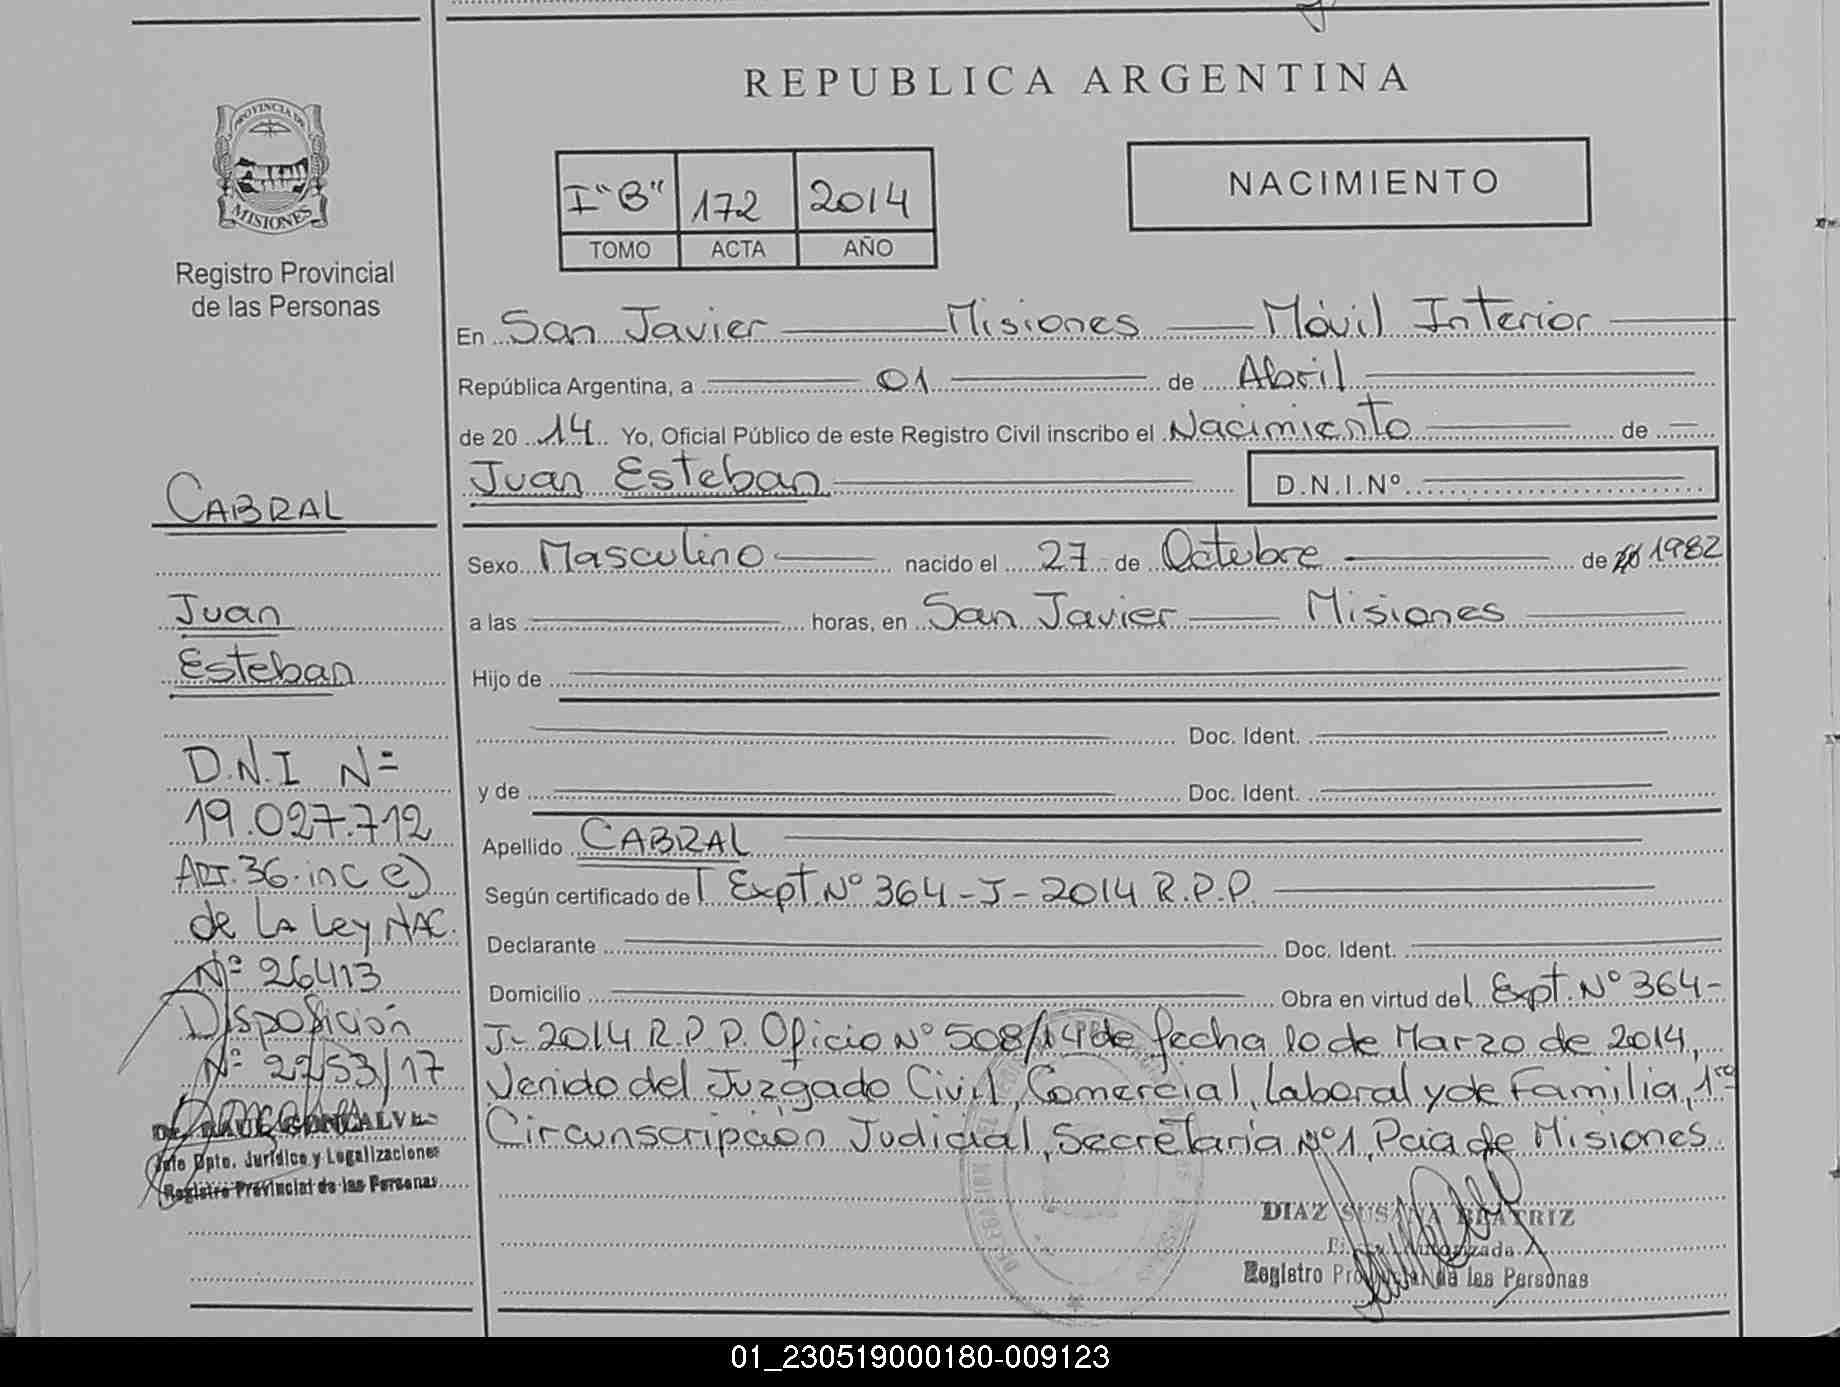 REPUBLICA ARGENTINA
PROVINCIA DE
MISIONES
Registro Provincial
de las Personas
I "B" 172 2014
TOMO ACTA AÑO
NACIMIENTO
En San Javier Misiones Móvil Interior
República Argentina, a 01 de Abril
de 20 14 Yo, Oficial Público de este Registro Civil inscribo el Nacimiento de
Juan Esteban D.N.I.Nº
Sexo Masculino nacido el 27 de Octubre de 1982
a las horas, en San Javier Misiones
Hijo de
Doc. Ident.
y de Doc. Ident.
Apellido CABRAL
Según certificado del Expt. Nº 364-J-2014 R.P.P.
Declarante Doc. Ident.
Domicilio Obra en virtud del Expt. Nº 364-
J-2014 R.P.P. Oficio Nº 508/14 de fecha 10 de Marzo de 2014,
venido del Juzgado Civil, Comercial, Laboral y de Familia, 1ra
Circunscripción Judicial, Secretaría Nº1, Pcia de Misiones.
DIAZ SUSANA BEATRIZ
Autorizada
Registro Provincial de las Personas
CABRAL
Juan
Esteban
D.N.I Nº
19.027.712
ART. 36 inc e)
de LA Ley NAC.
Nº 26413
Disposición
Nº 2253/17
Dr. RAUL GONCALVES
Jefe Dpto. Jurídico y Legalizaciones
Registro Provincial de las Personas
01_230519000180-009123